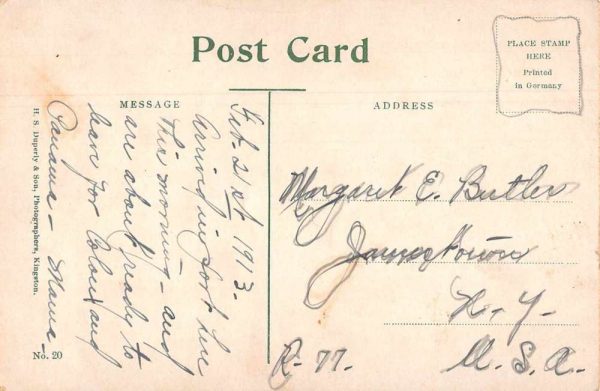 Post Card
PLACE STAMP
HERE
Printed
in Germany
MESSAGE
ADDRESS
Feb. 21st 1913.
Arrived in port here
this morning - and
are about ready to
leave for Colon and
Panama - Mama -
Margaret E. Butler
Jamestown
N. Y.
R-77. U. S. A.
H. S. Duperly & Son, Photographers, Kingston.
No. 20